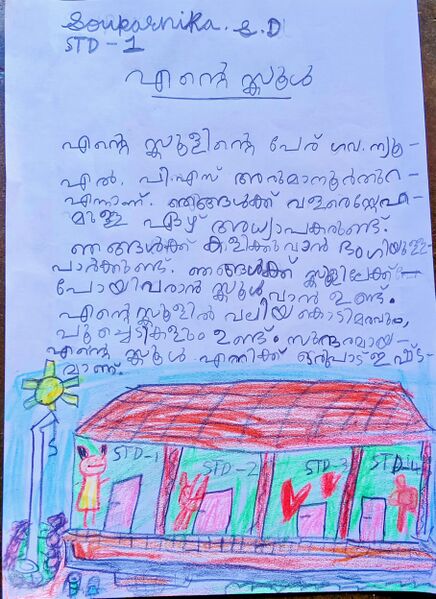 Souparnika. S. D
STD - 1
എന്റെ സ്കൂൾ
എന്റെ സ്കൂളിന്റെ പേര് ഗവ. ന്യൂ -
എൽ. പി. എസ് അരുമാനൂർതുറ -
എന്നാണ്. ഞങ്ങൾക്ക് വളരെസ്നേഹ -
മുള്ള ഏഴ് അധ്യാപകരുണ്ട്.
ഞങ്ങൾക്ക് കളിക്കുവാൻ ഭംഗിയുള്ള
പാർക്കുണ്ട്. ഞങ്ങൾക്ക് സ്കൂളിലേക്ക്
പോയിവരാൻ സ്കൂൾവാൻ ഉണ്ട്.
എന്റെ സ്കൂളിൽ വലിയ കൊടിമരവും,
പൂച്ചെടികളും ഉണ്ട്. സുന്ദരമായ -
എന്റെ സ്കൂൾ എനിക്ക് ഒരുപാട് ഇഷ്ട -
മാണ്.
STD - 1 STD - 2 STD - 3 STD - 4